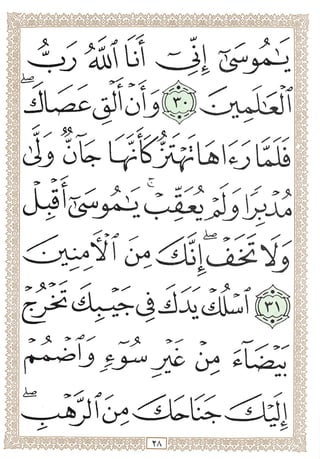 يَـٰمُوسَىٰٓ إِنِّىٓ أَنَا ٱللَّهُ رَبُّ
ٱلْعَـٰلَمِينَ ﴿٣٠﴾ وَأَنْ أَلْقِ عَصَاكَ ۖ
فَلَمَّا رَءَاهَا تَهْتَزُّ كَأَنَّهَا جَآنٌّ وَلَّىٰ
مُدْبِرًا وَلَمْ يُعَقِّبْ ۚ يَـٰمُوسَىٰٓ أَقْبِلْ
وَلَا تَخَفْ ۖ إِنَّكَ مِنَ ٱلْـَٔامِنِينَ
﴿٣١﴾ ٱسْلُكْ يَدَكَ فِى جَيْبِكَ تَخْرُجْ
بَيْضَآءَ مِنْ غَيْرِ سُوٓءٍ وَٱضْمُمْ
إِلَيْكَ جَنَاحَكَ مِنَ ٱلرَّهْبِ ۖ
٢٨